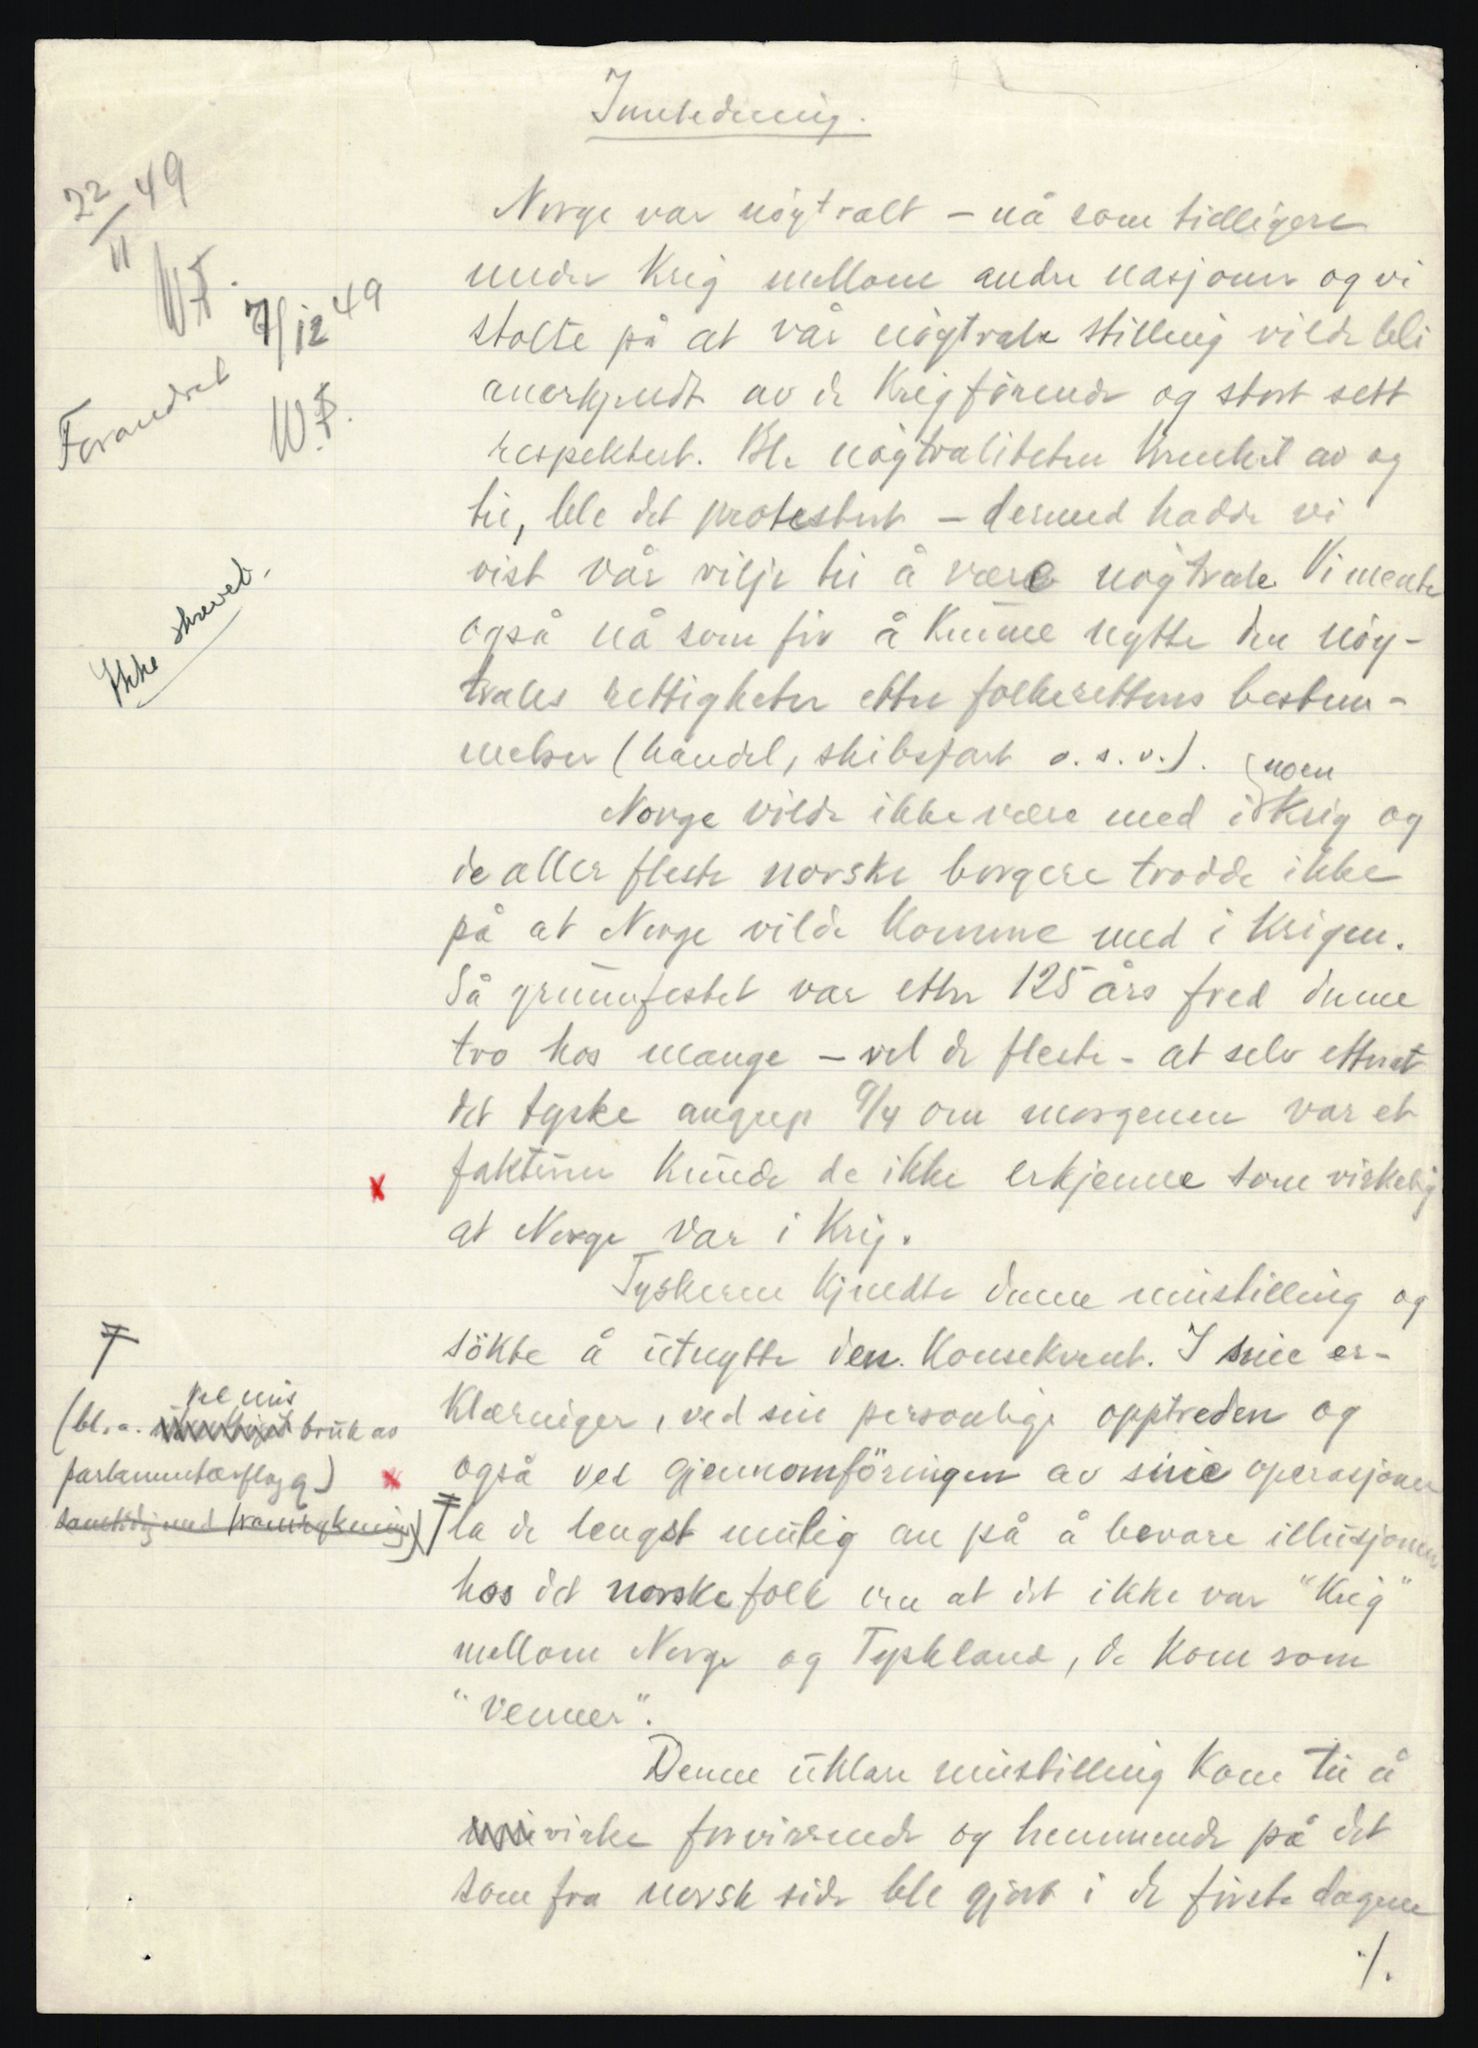 Innledning.
22/11 49
W.F.
Forandret 7/12 49
W.F.
Norge var nøytralt – nå som tidligere
under Krig mellom andre nasjoner og vi
stolte på at vår nøytrale stilling vilde bli
anerkjendt av de Krigførende og stort sett
respektert. Ble nøytraliteten krenket av og
til, ble det protestert – dermed hadde vi
vist vår vilje til å være nøytrale. Vi mente
Ikke skrevet.
også nå som før å kunne nytte den nøy-
trales rettigheter etter folkerettens bestem-
melser (handel, skibsfart o. s. v.).
noen
Norge vilde ikke være med i Krig og
de aller fleste norske borgere trodde ikke
på at Norge vilde komme med i Krigen.
Så grunnfestet var etter 125 års fred denne
tro hos mange – vel de fleste – at selv etterat
det tyske angrep 9/4 om morgenen var et
faktum kunde de ikke erkjenne som virkelig
at Norge var i Krig.
Tyskerne kjendte denne innstilling og
søkte å utnytte den konsekvent. I sine er-
klæringer, ved sin personlige opptreden og
også ved gjennomføringen av sine operasjoner
(bl. a. ved mis
bruk av
parlamentærflagg)
samtidig med framrykning)
la de lengst mulig an på å bevare illusjonen
hos det norske folk om at det ikke var "Krig"
mellom Norge og Tyskland, de kom som
"venner".
Denne uklare innstilling kom til å
virke forvirrende og hemmende på det
som fra norsk side ble gjort i de første dagene
./.